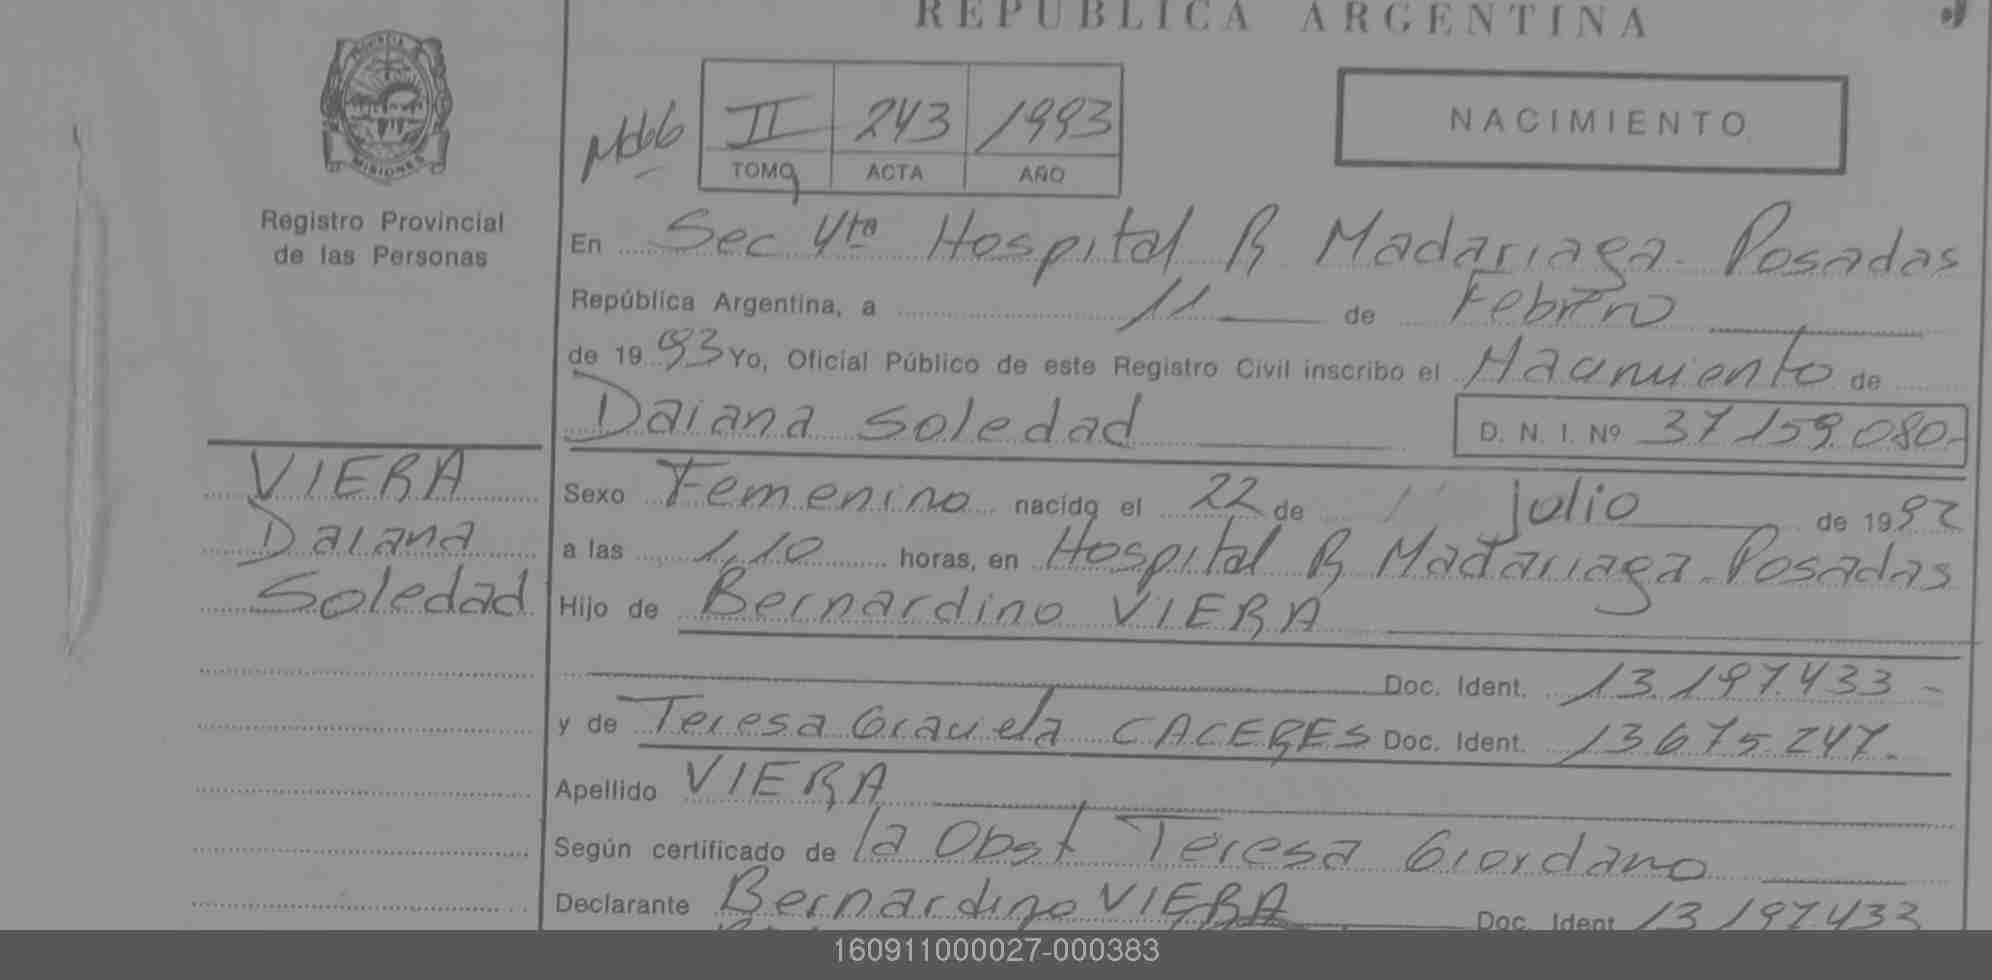 REPUBLICA ARGENTINA
PROVINCIA
MISIONES
Registro Provincial
de las Personas
II 243 1993
TOMO ACTA AÑO
NACIMIENTO
En Sec 4ta Hospital R Madariaga Posadas
República Argentina, a 11 de Febrero
de 1993 Yo, Oficial Público de este Registro Civil inscribo el Nacimiento de
Daiana Soledad D. N. I. Nº 37159.080-
VIERA
Daiana
Soledad
Sexo Femenino nacido el 22 de Julio de 1992
a las 1,10 horas, en Hospital R Madariaga-Posadas
Hijo de Bernardino VIERA
Doc. Ident. 13.197.433-
y de Teresa Graciela CACERES Doc. Ident. 13.675.247.-
Apellido VIERA
Según certificado de la Obst Teresa Giordano
Declarante Bernardino VIERA Doc. Ident 13.197.433
160911000027-000383